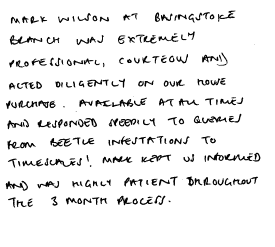 MARK WILSON AT BASINGSTOKE
BRANCH WAS EXTREMELY
PROFESSIONAL, COURTEOUS AND
ACTED DILIGENTLY ON OUR HOUSE
PURCHASE. AVAILABLE AT ALL TIMES
AND RESPONDED SPEEDILY TO QUERIES
FROM BEETLE INFESTATIONS TO
TIMESCALES! MARK KEPT US INFORMED
AND WAS HIGHLY PATIENT THROUGHOUT
THE 3 MONTH PROCESS.